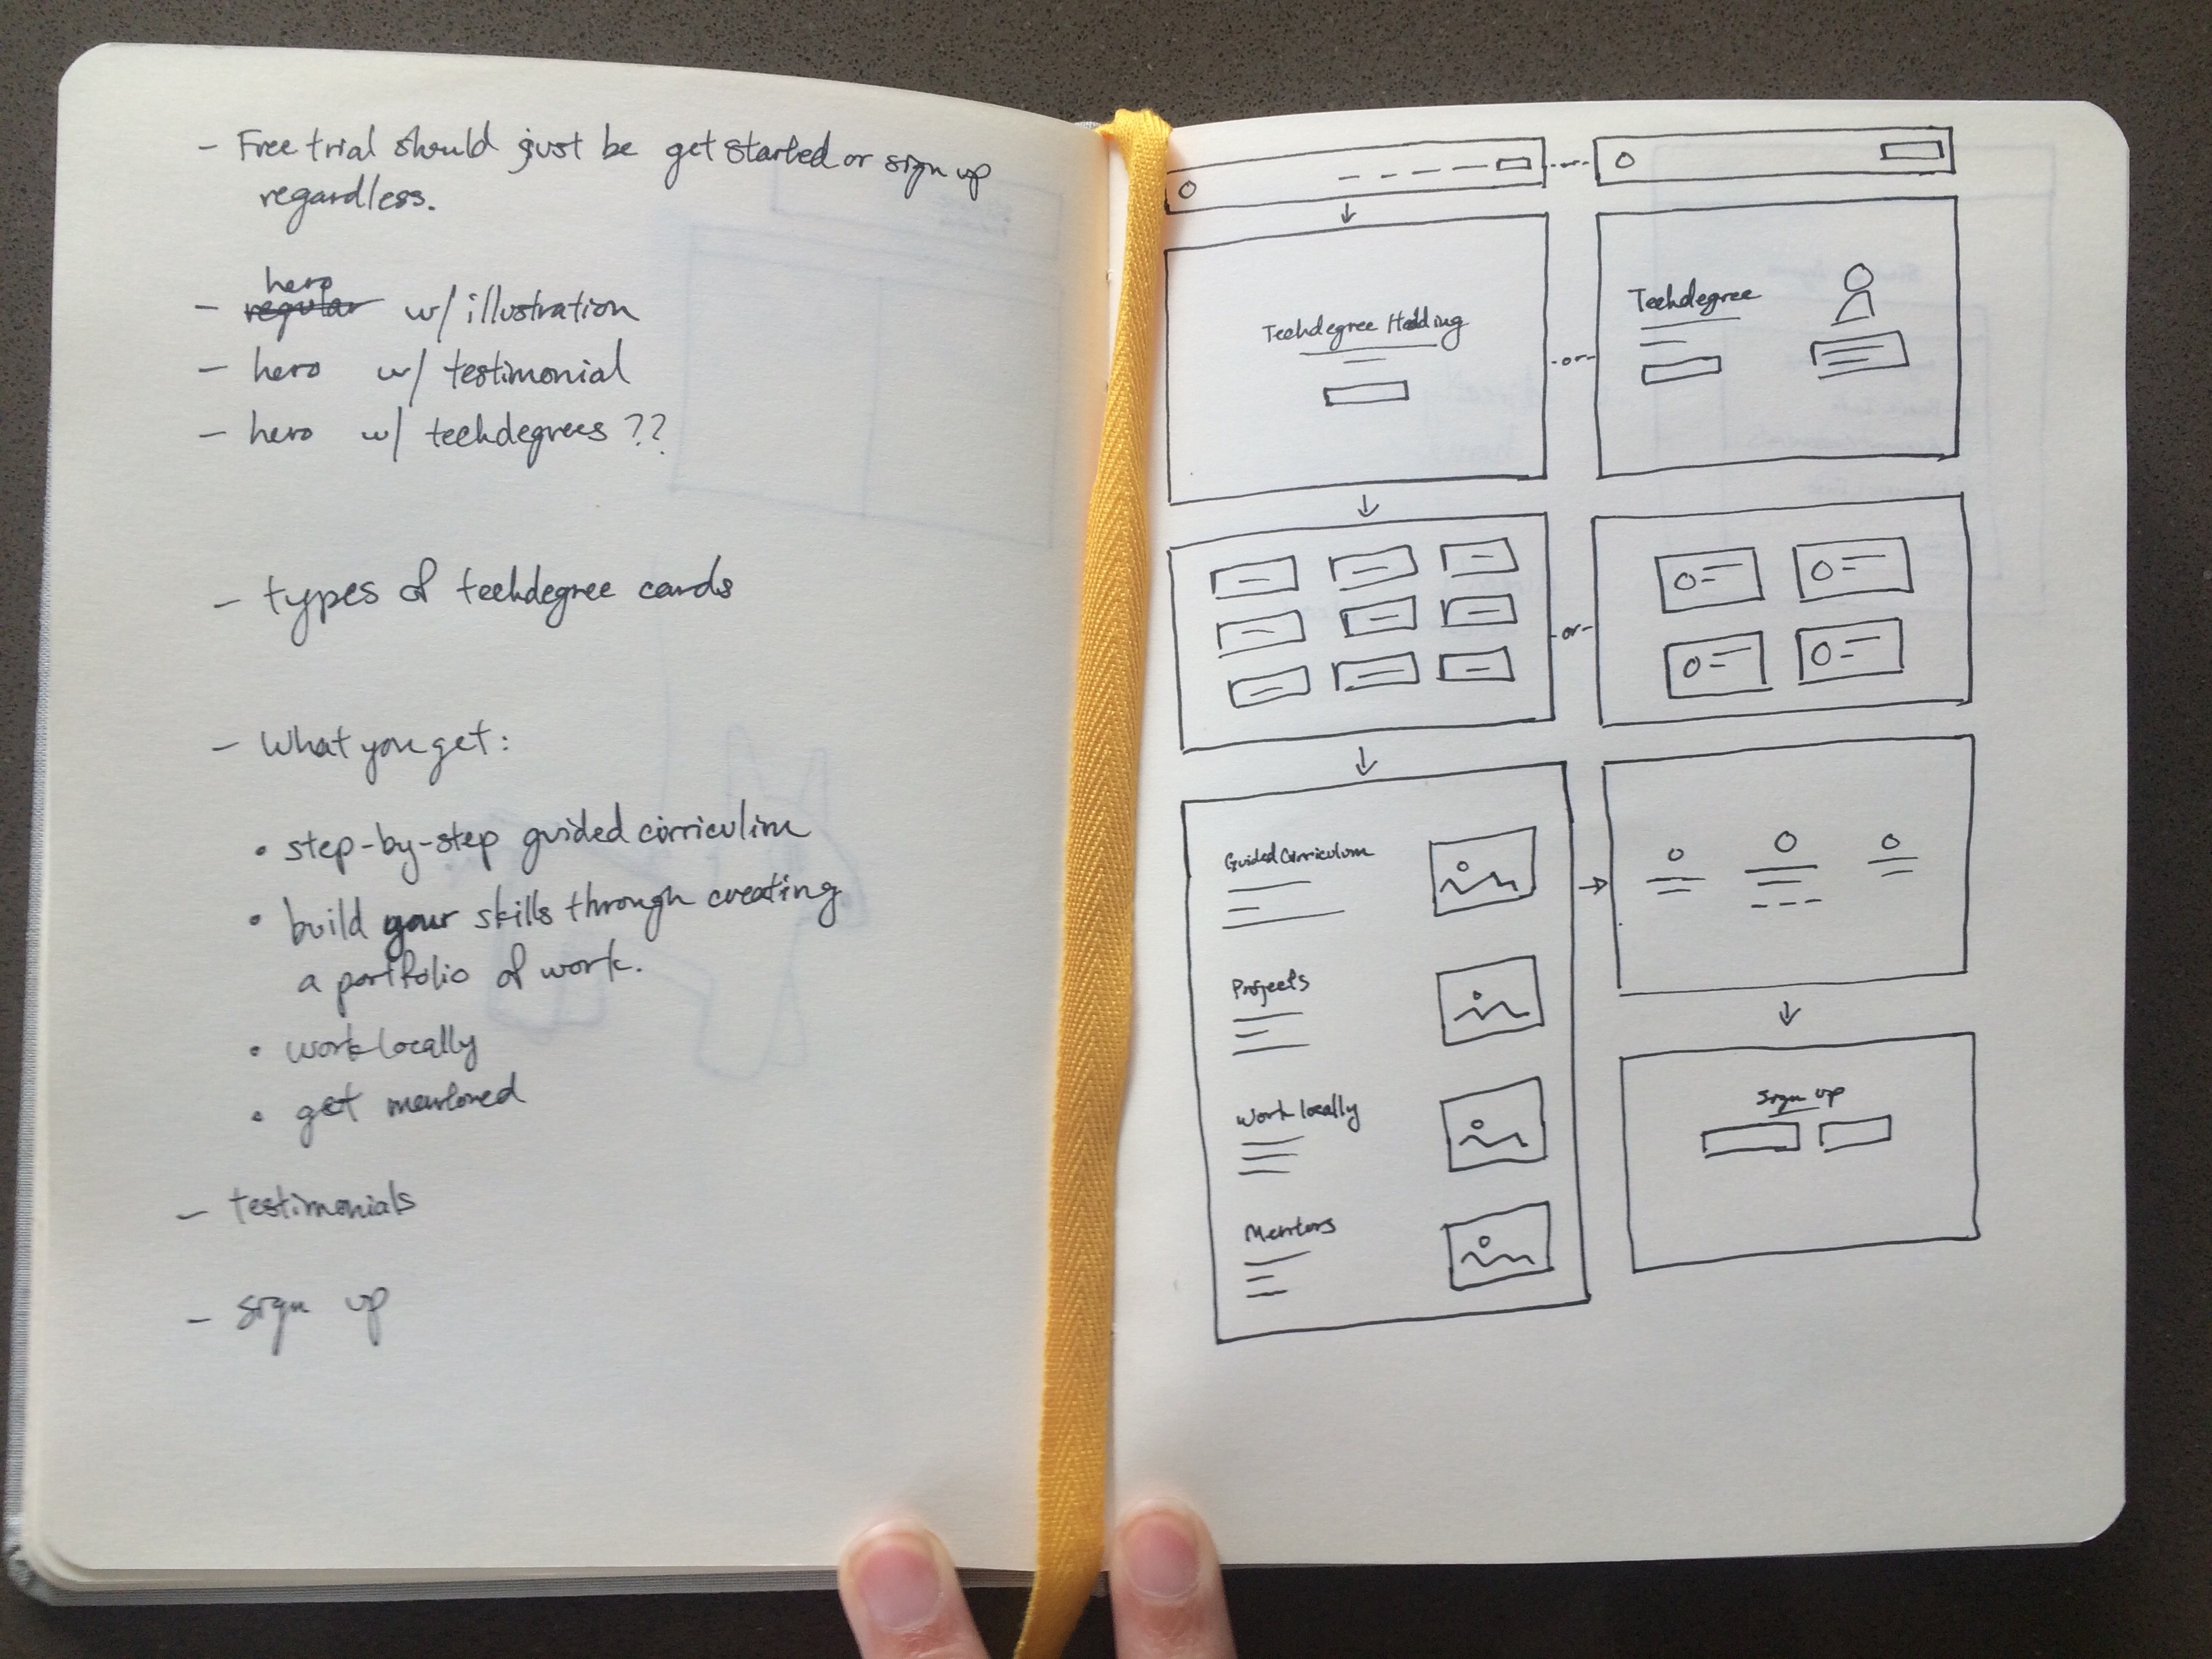 - Free trial should just be get started or sign up
regardless.
hero
- regular w/ illustration
- hero w/ testimonial
- hero w/ techdegrees ??
- types of techdegree cards
- What you get:
• step-by-step guided curriculum
• build your skills through creating
a portfolio of work.
• work locally
• get mentored
- testimonials
- sign up
-or-
Techdegree Heading
-or-
Techdegree
-or-
Guided Curriculum
Projects
Work locally
Mentors
Sign up